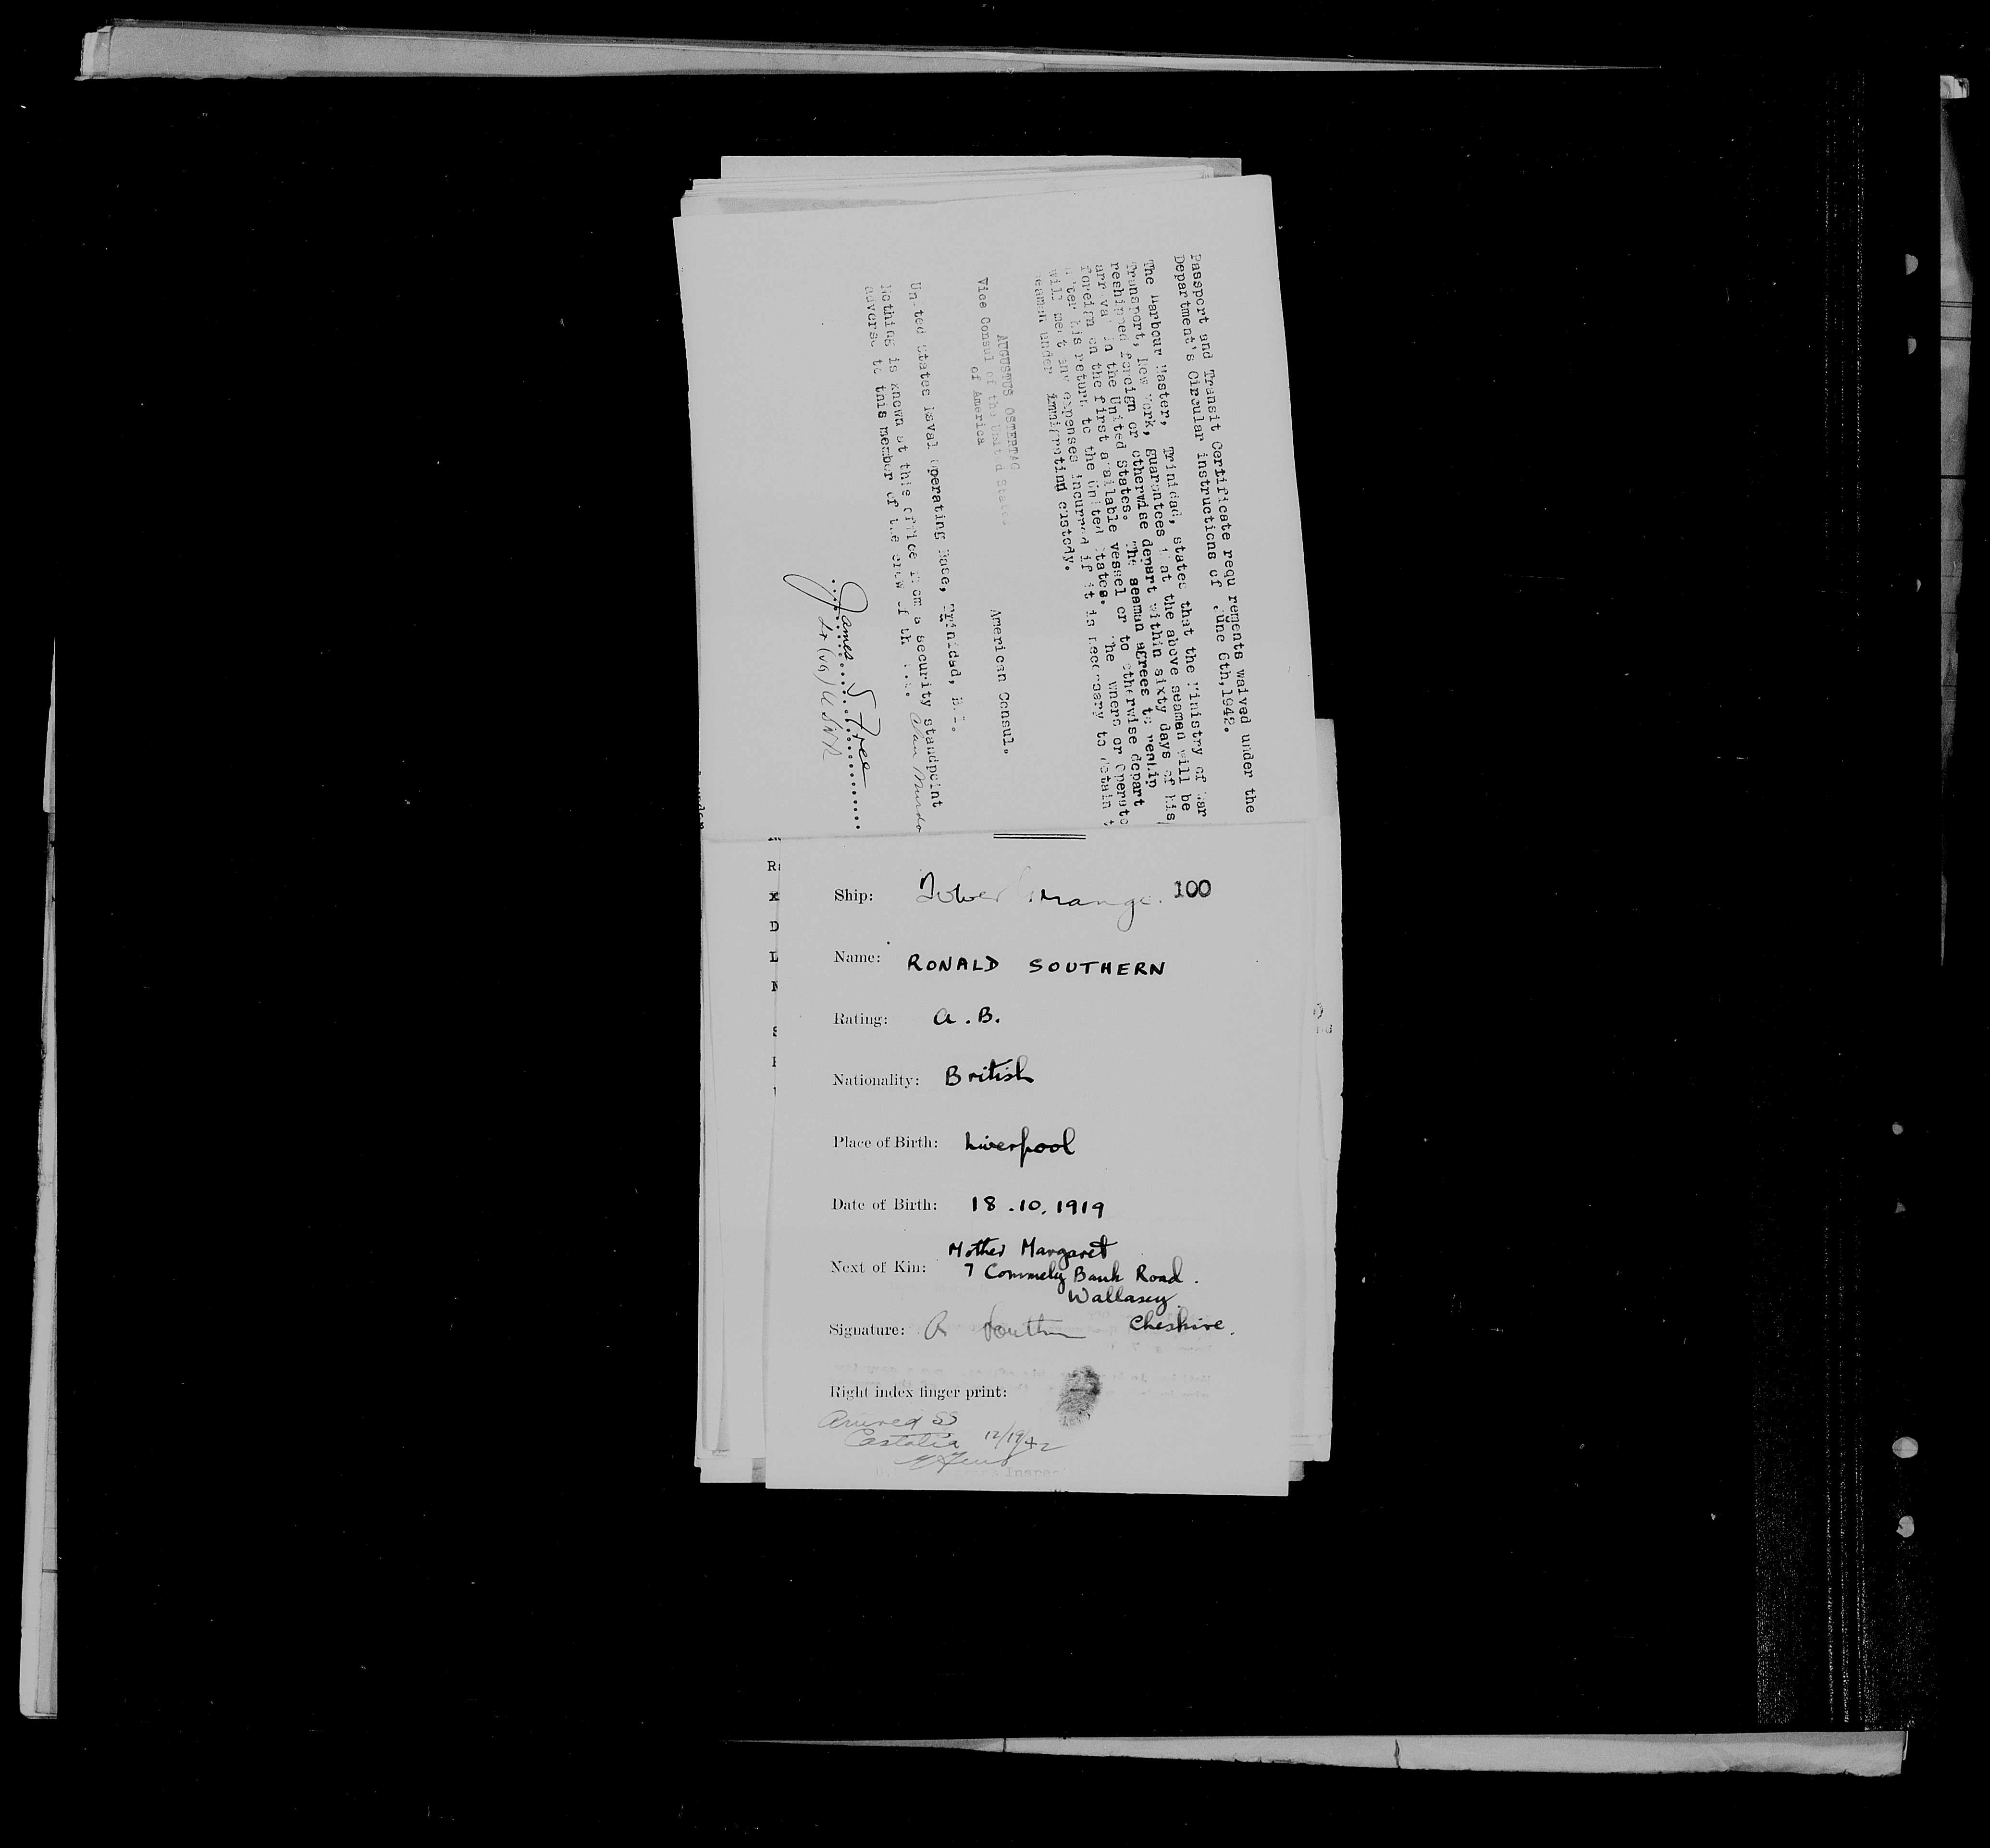 Passport and Transit Certificate requ rements waived under the
Department's Circular instructions of June 6th, 1942.
The Harbour Master, Trinidad, states that the Ministry of War
Transport, New York, guarantees that the above seaman will be
reshipped foreign or otherwise depart within sixty days of his
arr val in the United States. The seaman agrees to reship
foreign on the first available vessel or to otherwise depart
after his return to the United States. The wners or Operato
will meet any expenses incurred if it is necessary to detain t
seaman under immigration custody.
American Consul.
AUGUSTUS OSTERTAG
Vice Consul of the United States
of America
United States Naval Operating Base, Trinidad, B.
Nothing is known at this office from a security standpoint
adverse to this member of the crew of th
James S Free
Lt (vg) USNR
100
Ship: Tower Grange.
Name: RONALD SOUTHERN
Rating: A.B.
Nationality: British
Place of Birth: Liverpool
Date of Birth: 18.10.1919
Next of Kin: Mother Margaret
7 Bank Road.
Wallasey.
Cheshire.
Signature: R Southern
Right index finger print:
Arrived SS
Castalia 12/19/42
Inspe